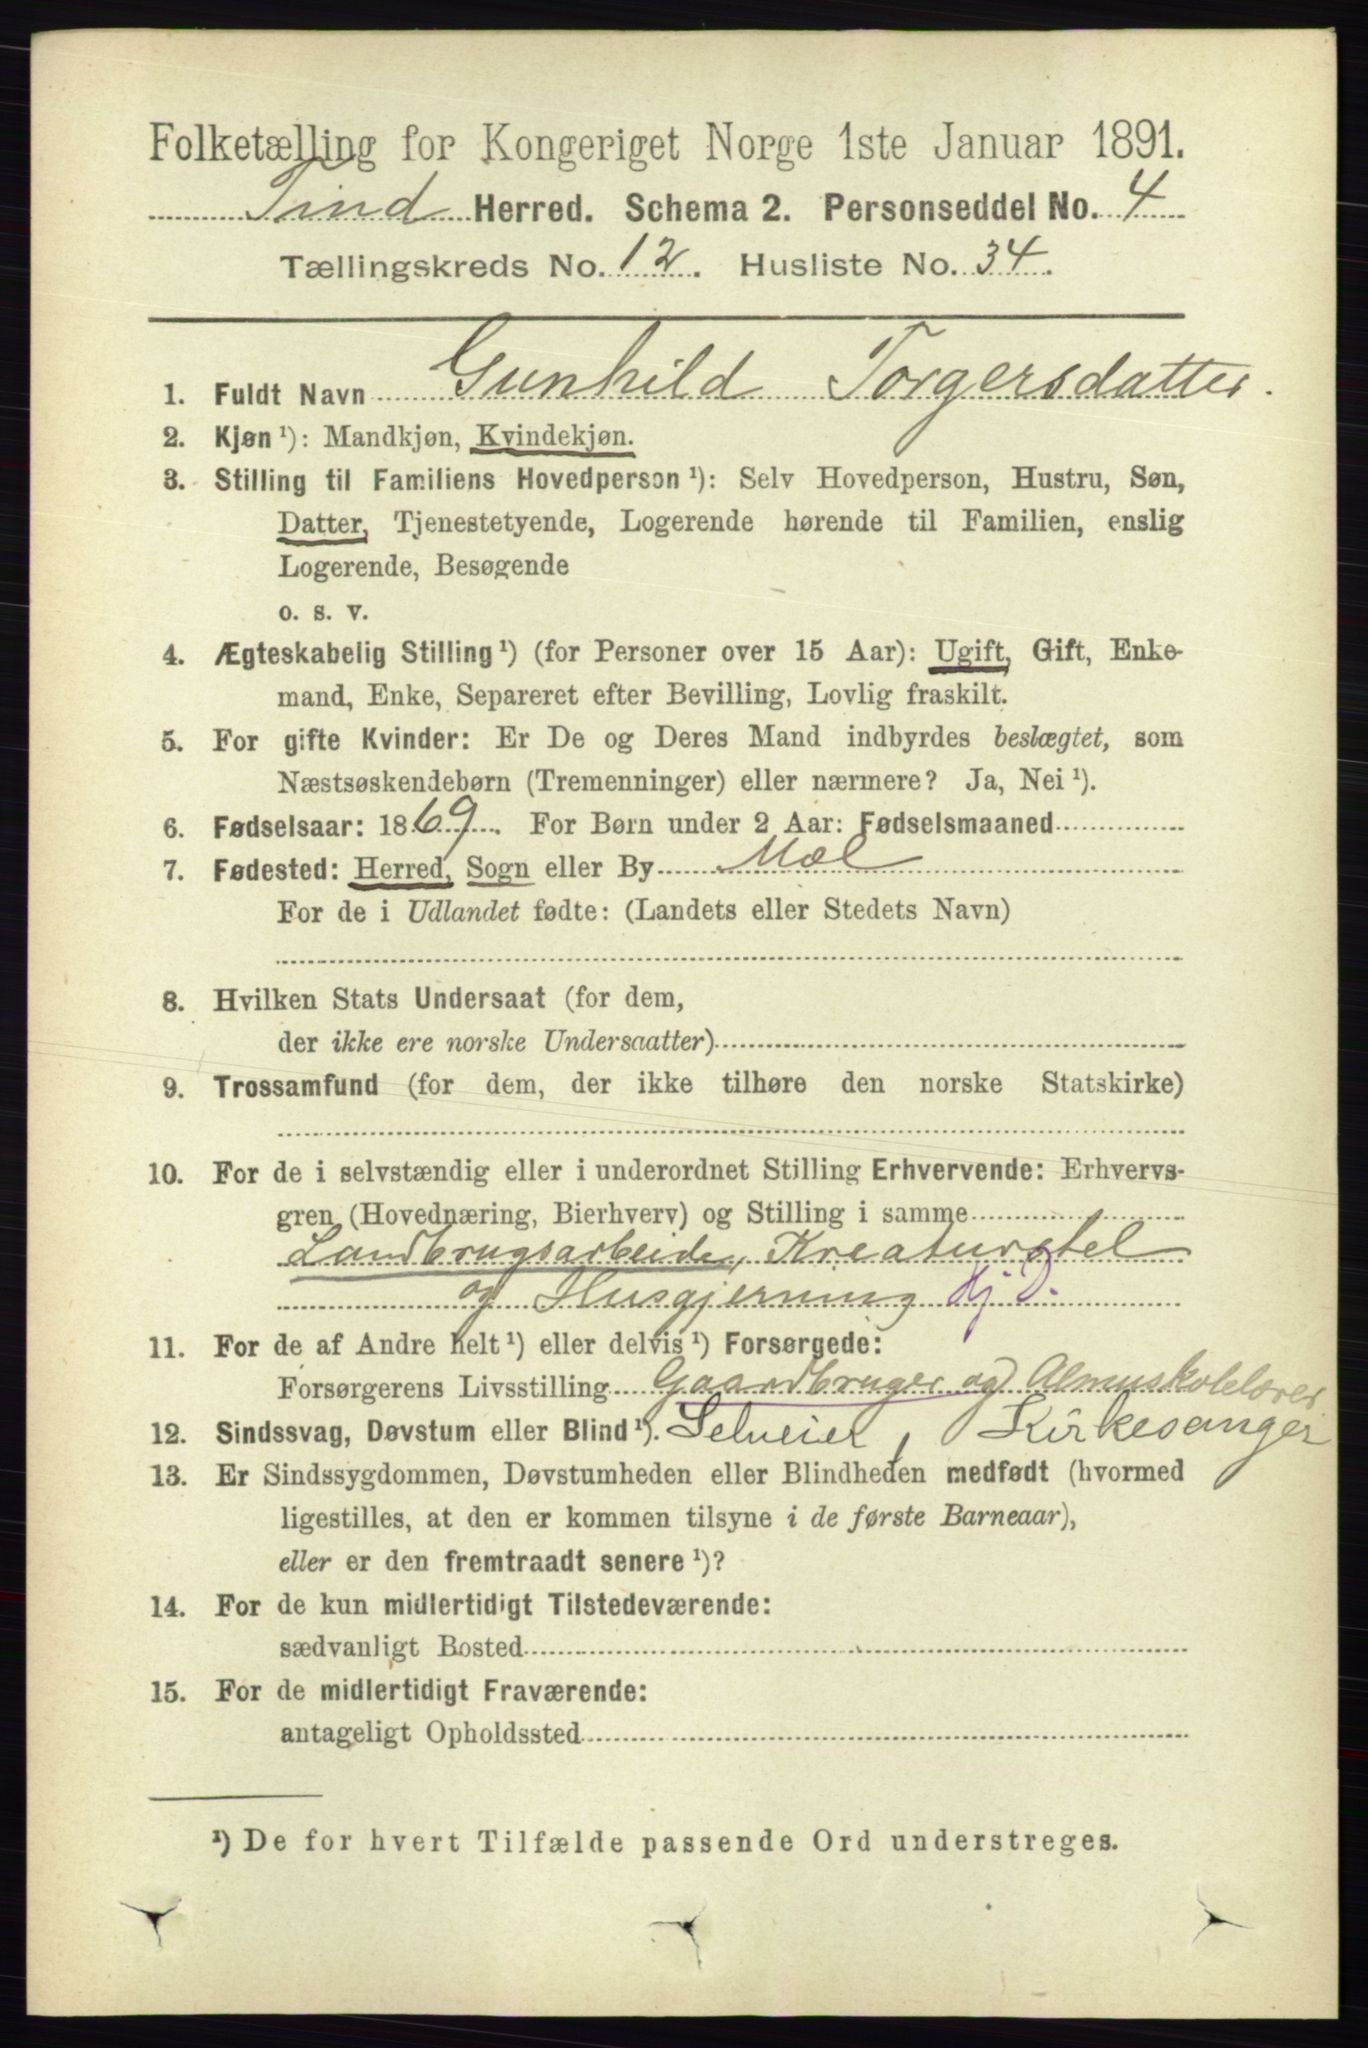 Folketælling for Kongeriget Norge 1ste Januar 1891.
Tind Herred. Schema 2. Personseddel No. 4
Tællingskreds No. 12. Husliste No. 34.
1. Fuldt Navn Gunhild Torgersdatter.
2. Kjøn ¹): Mandkjøn, Kvindekjøn.
3. Stilling til Familiens Hovedperson ¹): Selv Hovedperson, Hustru, Søn,
Datter, Tjenestetyende, Logerende hørende til Familien, enslig
Logerende, Besøgende
o. s. v.
4. Ægteskabelig Stilling ¹) (for Personer over 15 Aar): Ugift, Gift, Enke-
mand, Enke, Separeret efter Bevilling, Lovlig fraskilt.
5. For gifte Kvinder: Er De og Deres Mand indbyrdes beslægtet, som
Næstsøskendebørn (Tremenninger) eller nærmere? Ja, Nei ¹).
6. Fødselsaar: 1869. For Børn under 2 Aar: Fødselsmaaned
7. Fødested: Herred, Sogn eller By Mæl
For de i Udlandet fødte: (Landets eller Stedets Navn)
8. Hvilken Stats Undersaat (for dem,
der ikke ere norske Undersaatter)
9. Trossamfund (for dem, der ikke tilhøre den norske Statskirke)
10. For de i selvstændig eller i underordnet Stilling Erhvervende: Erhvervs-
gren (Hovednæring, Bierhverv) og Stilling i samme
Landbrugsarbeide, Kreaturstel
og Husgjerning Hj D.
11. For de af Andre helt ¹) eller delvis ¹) Forsørgede:
Forsørgerens Livsstilling Gaardbruger og Almuskolelærer
12. Sindssvag, Døvstum eller Blind ¹). Selveier, Kirkesanger
13. Er Sindssygdommen, Døvstumheden eller Blindheden medfødt (hvormed
ligestilles, at den er kommen tilsyne i de første Barneaar),
eller er den fremtraadt senere ¹)?
14. For de kun midlertidigt Tilstedeværende:
sædvanligt Bosted
15. For de midlertidigt Fraværende:
antageligt Opholdssted
¹) De for hvert Tilfælde passende Ord understreges.